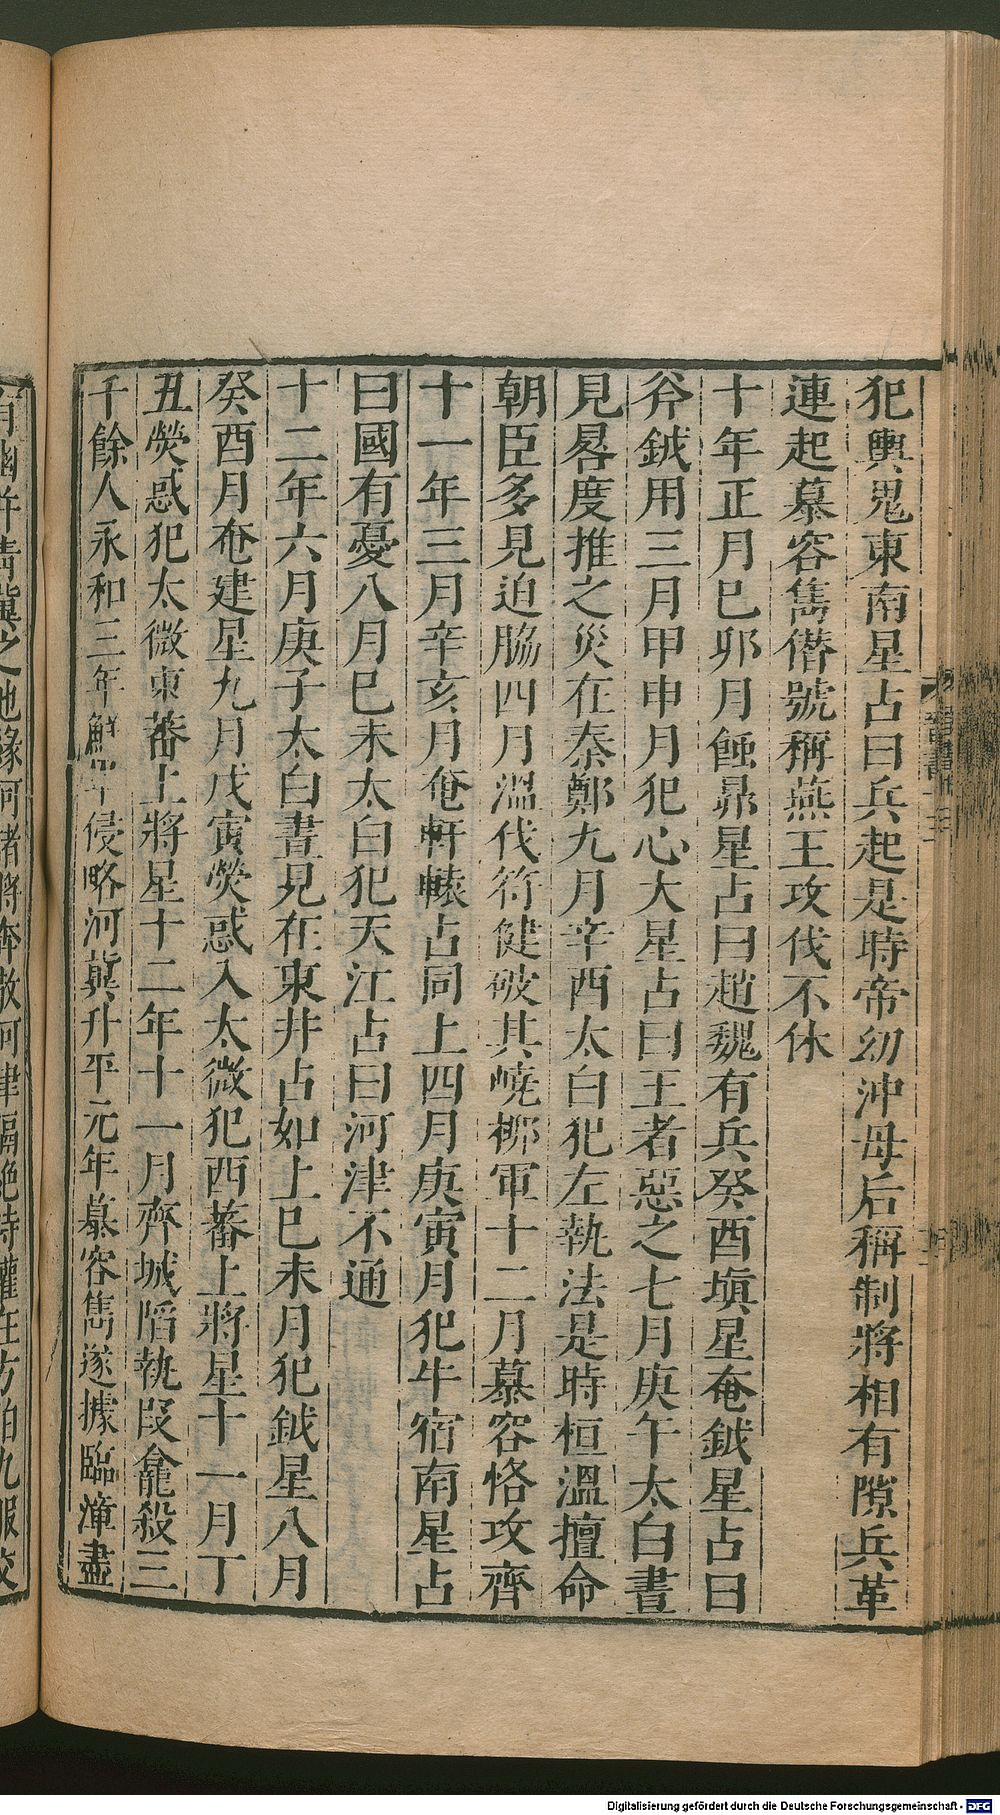 犯輿鬼東南星占曰兵起是時帝幼沖母后稱制將相有隙兵革
連起慕容雋僭號稱燕王攻伐不休
十年正月巳卯月蝕昴星占曰趙魏有兵癸酉塡星奄鉞星占曰
斧鉞用三月甲申月犯心大星占曰王者惡之七月庚午太白晝
見晷度推之災在秦鄭九月辛酉太白犯左執法是時桓溫擅命
朝臣多見迫脇四月溫伐苻健破其嶢柳軍十二月慕容恪攻齊
十一年三月辛亥月奄軒轅占同上四月庚寅月犯牛宿南星占
曰國有憂八月巳未太白犯天江占曰河津不通
十二年六月庚子太白晝見在東井占如上巳未月犯鉞星八月
癸酉月奄建星九月戊寅熒惑入太微犯西蕃上將星十一月丁
丑熒惑犯太微東蕃上將星十二年十一月齊城陷執段龕殺三
千餘人永和三年鮮卑侵略河冀升平元年慕容雋遂據臨漳盡
幽并靑冀之地緣河諸將奔散河津隔絕時權在方伯九服交
Digitalisierung gefördert durch die Deutsche Forschungsgemeinschaft - DFG